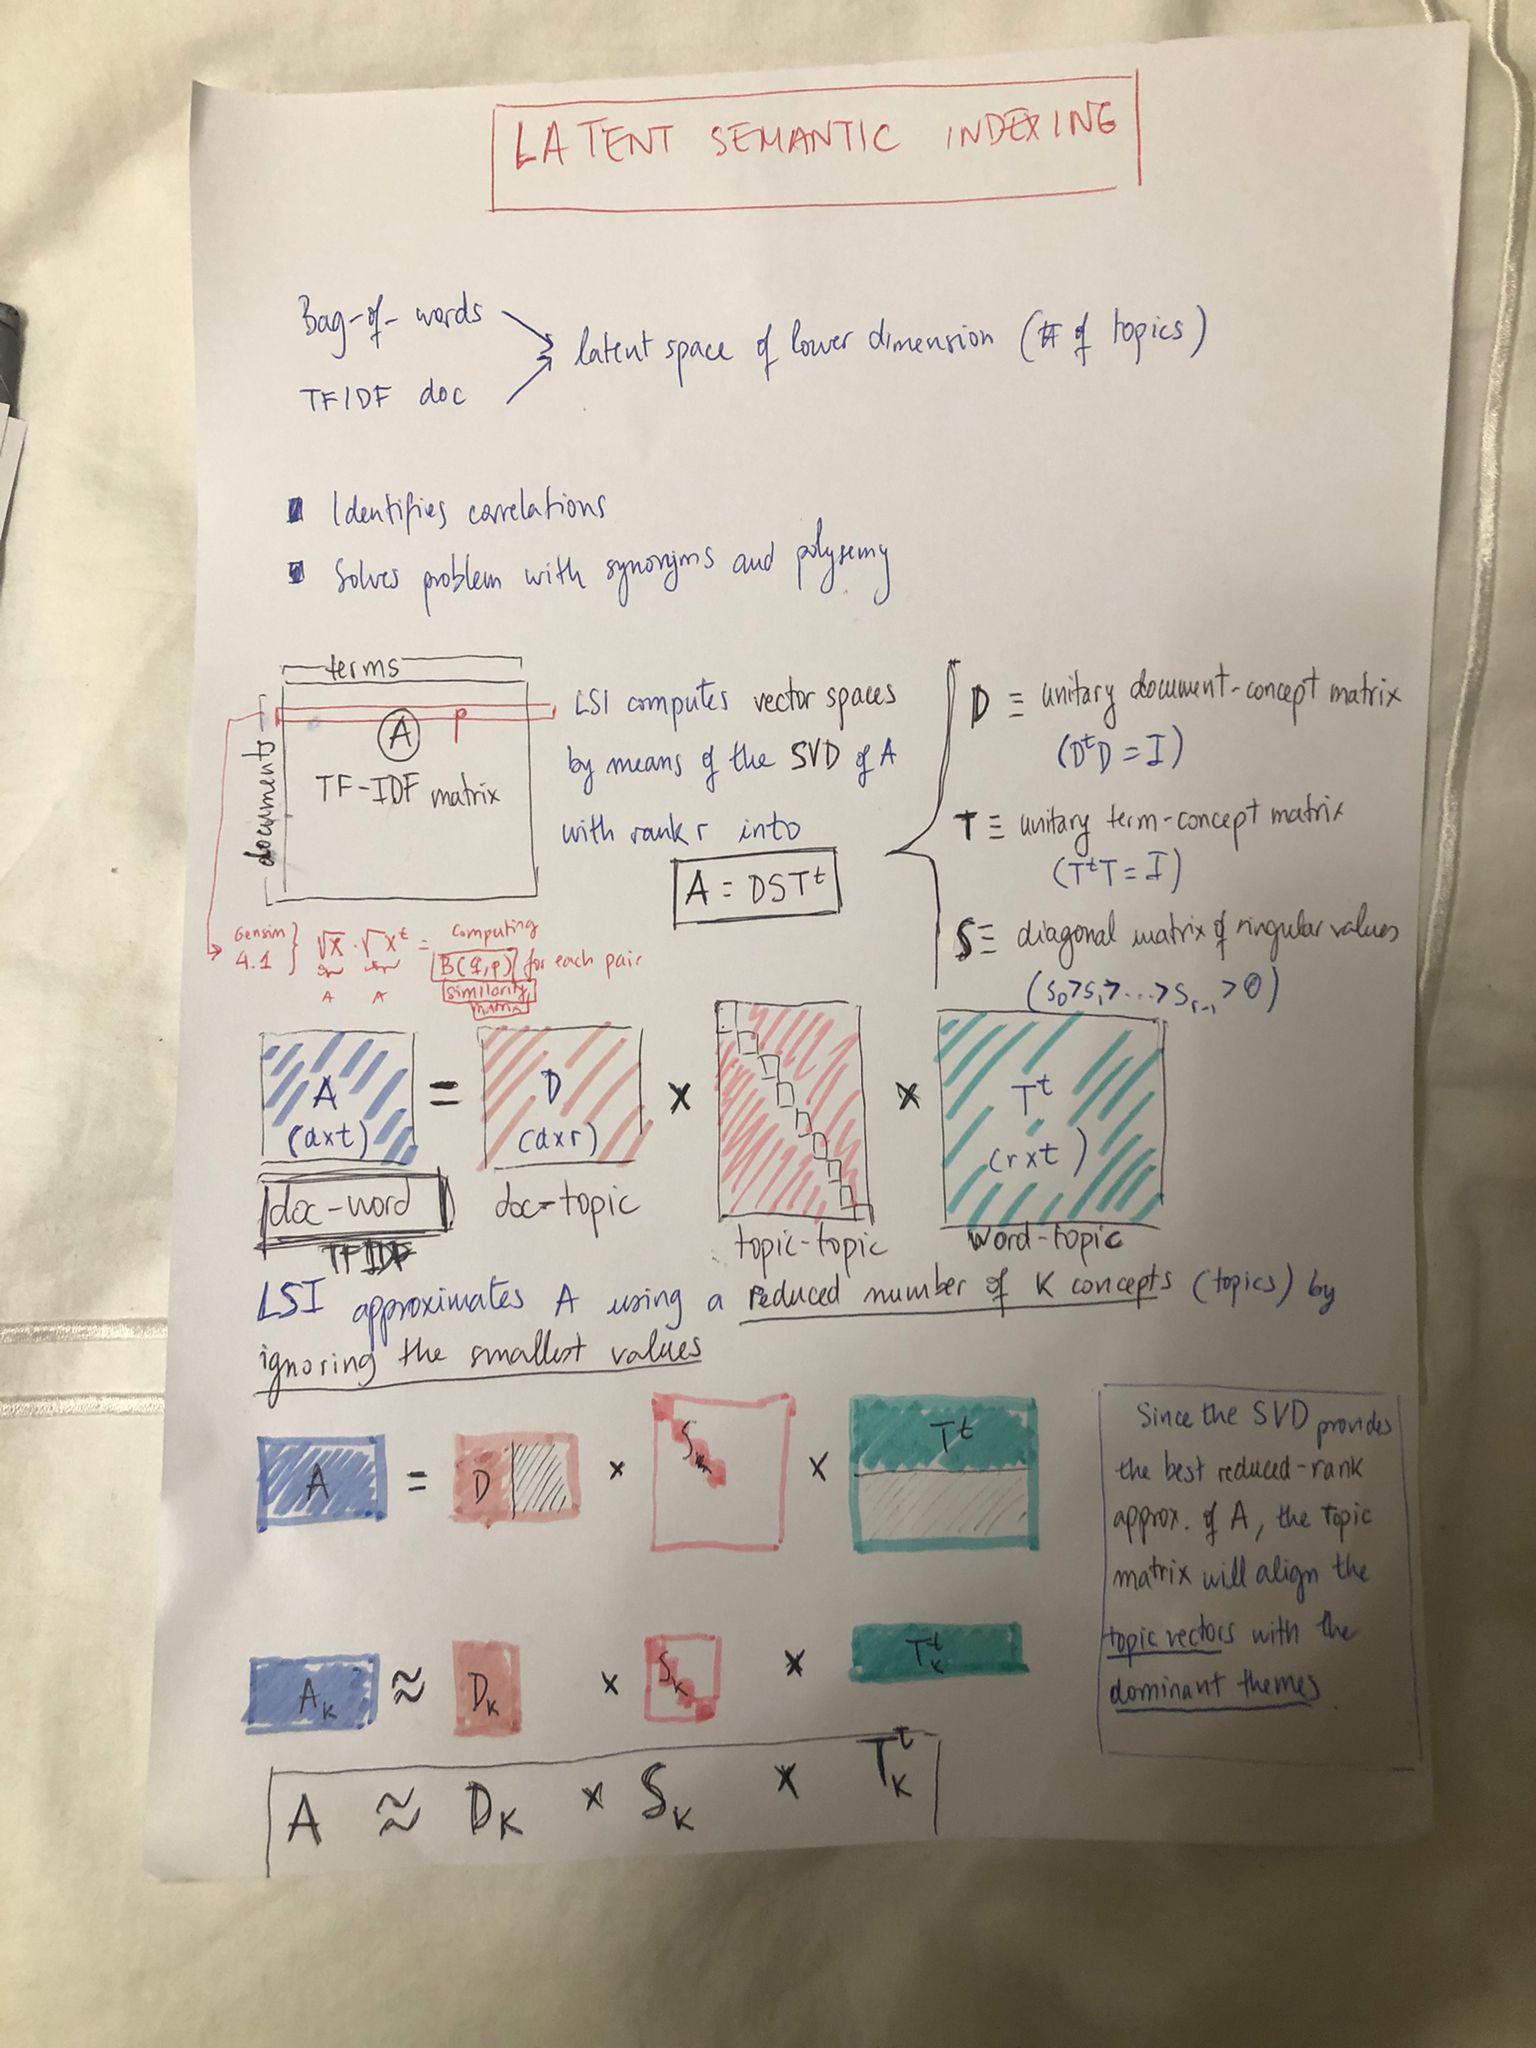 LATENT SEMANTIC INDEXING
Bag-of-words
TFIDF doc
latent space of lower dimension (# of topics)
Identifies correlations
Solves problem with synonyms and polysemy
terms
documents
A
P
TF-IDF matrix
LSI computes vector spaces
by means of the SVD of A
with rank r into
A = DSTᵗ
D ≡ unitary document-concept matrix
(DᵗD = I)
T ≡ unitary term-concept matrix
(TᵗT = I)
S ≡ diagonal matrix of singular values
(S₀ > S₁ > ... > Sᵣ₋₁ > 0)
Gensim
4.1
√x · √xᵗ =
A A
Computing
B(q,p) for each pair
similarity
A
(dxt)
=
D
(dxr)
x
x
Tᵗ
(rxt)
doc-word
TFIDF
doc-topic
topic-topic
word-topic
LSI approximates A using a reduced number of K concepts (topics) by
ignoring the smallest values
A = D x Sₖ x Tᵗ
Aₖ ≈ Dₖ x Sₖ x Tₖᵗ
A ≈ Dₖ x Sₖ x Tₖᵗ
Since the SVD provides
the best reduced-rank
approx. of A, the Topic
matrix will align the
topic vectors with the
dominant themes.